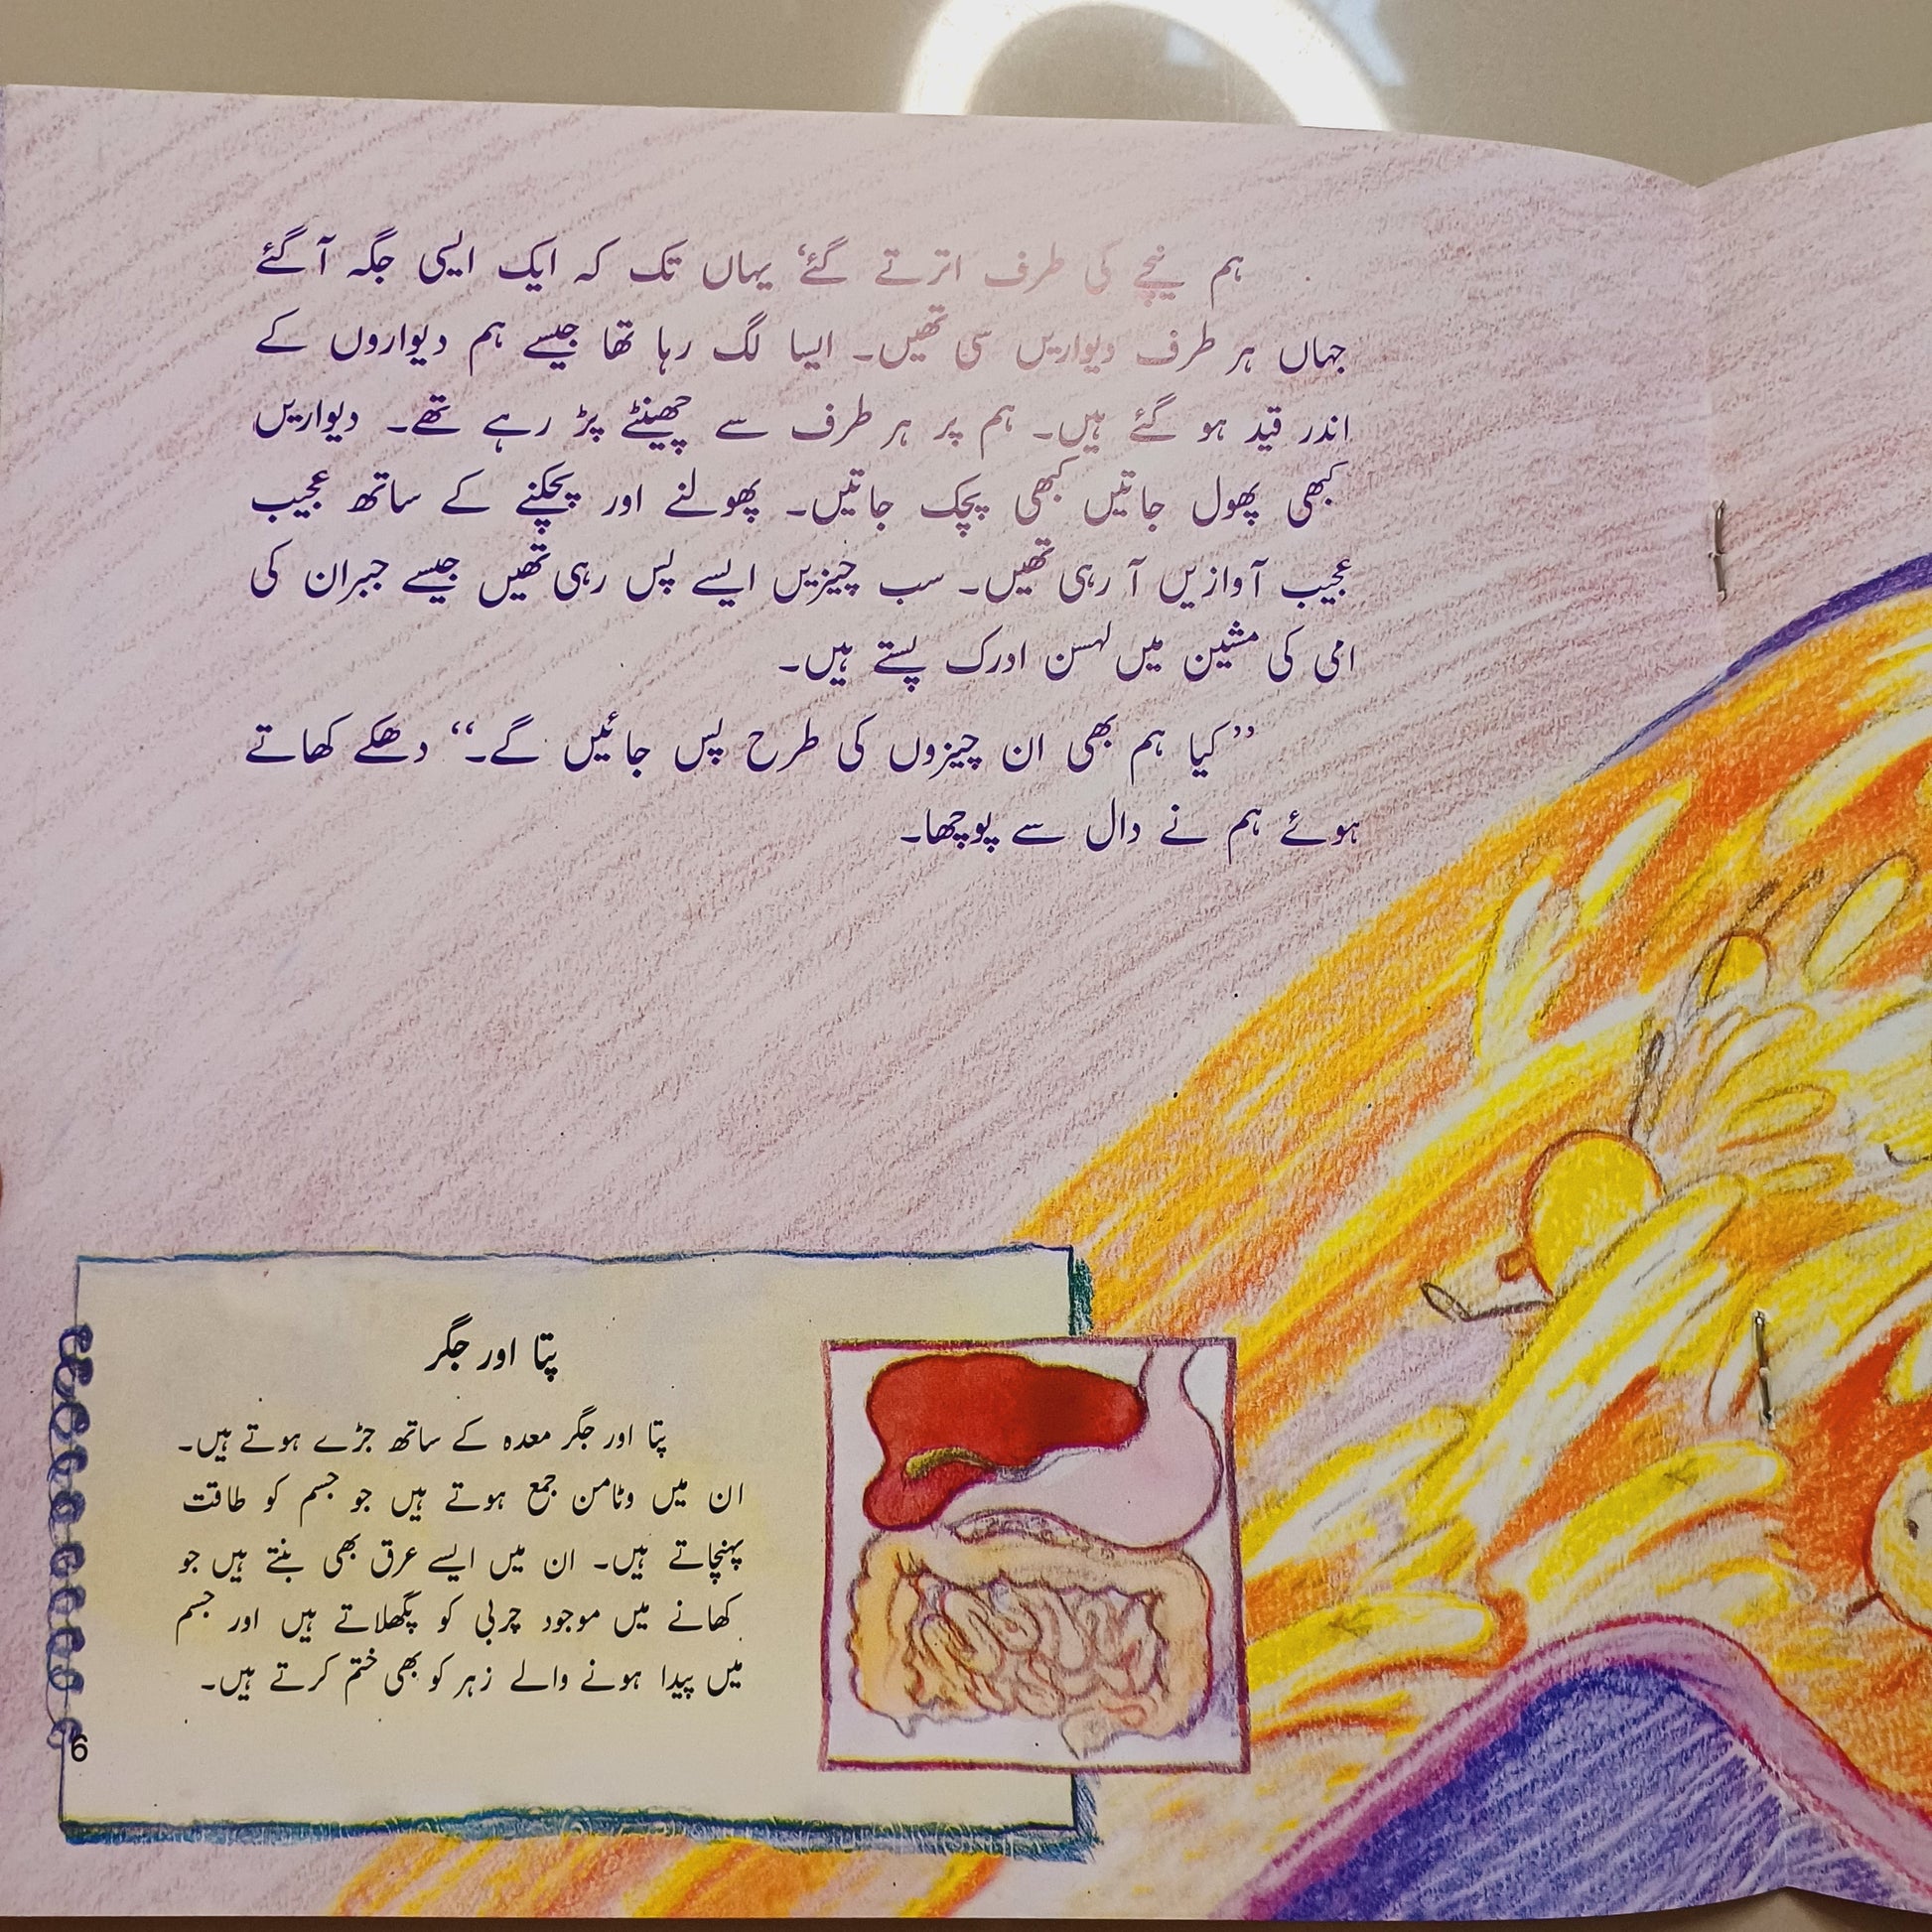 ہم نیچے کی طرف اترتے گئے، یہاں تک کہ ایک ایسی جگہ آ گئے
جہاں ہر طرف دیواریں سی تھیں۔ ایسا لگ رہا تھا جیسے ہم دیواروں کے
اندر قید ہو گئے ہیں۔ ہم پر ہر طرف سے چھینٹے پڑ رہے تھے۔ دیواریں
کبھی پھول جاتیں کبھی پچک جاتیں۔ پھولنے اور پچکنے کے ساتھ عجیب
عجیب آوازیں آ رہی تھیں۔ سب چیزیں ایسے پس رہی تھیں جیسے جبران کی
امی کی مشین میں لہسن ادرک پستے ہیں۔
”کیا ہم بھی ان چیزوں کی طرح پس جائیں گے۔“ دھکے کھاتے
ہوئے ہم نے دال سے پوچھا۔
پتا اور جگر
پتا اور جگر معدہ کے ساتھ جڑے ہوتے ہیں۔
ان میں وٹامن جمع ہوتے ہیں جو جسم کو طاقت
پہنچاتے ہیں۔ ان میں ایسے عرق بھی بنتے ہیں جو
کھانے میں موجود چربی کو پگھلاتے ہیں اور جسم
میں پیدا ہونے والے زہر کو بھی ختم کرتے ہیں۔
6